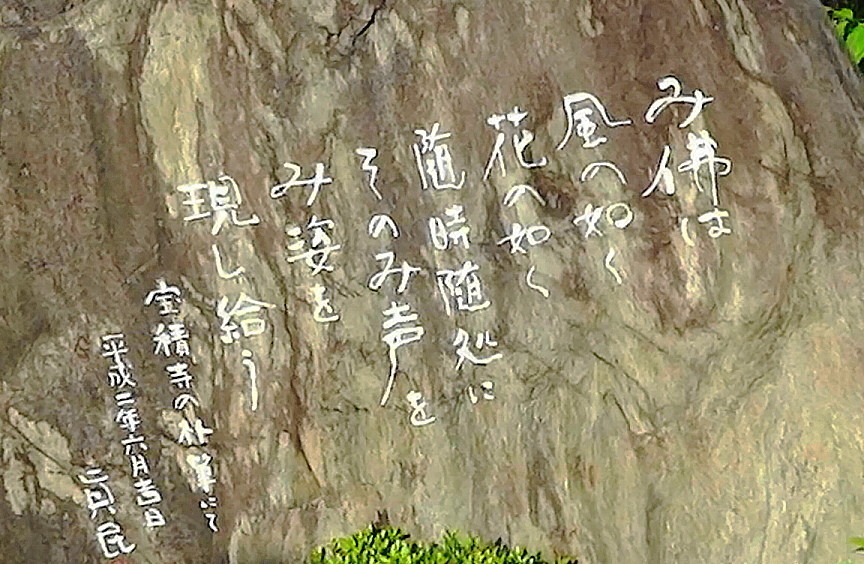 み佛は
風の如く
花の如く
随時随処に
そのみ声を
み姿を
現し給う
宝積寺の仕事にて
平成二年六月吉日
真民